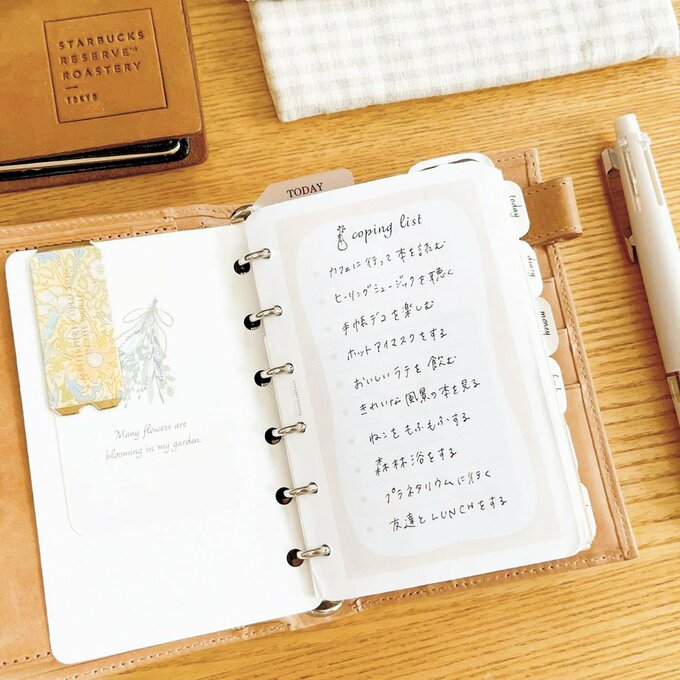 STARBUCKS
RESERVE™
ROASTERY
TOKYO
Many flowers are
blooming in my garden.
TODAY
coping list
カフェに行って本を読む
ヒーリングミュージックを聴く
手帳デコを楽しむ
ホットアイマスクをする
おいしいラテを飲む
きれいな風景の本を見る
ねこをもふもふする
森林浴をする
プラネタリウムに行く
友達とLUNCHをする
today
diary
money